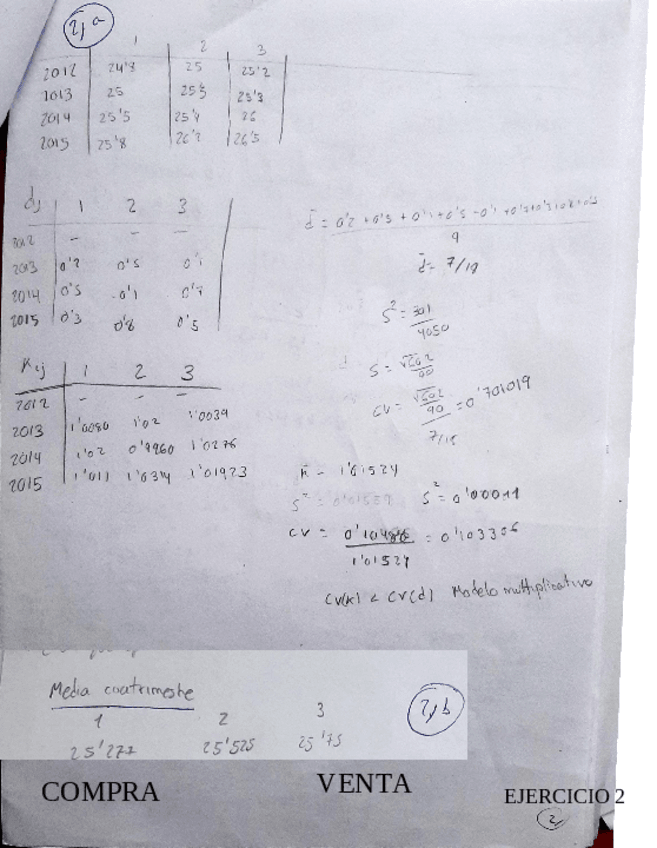 2, a
1 2 3
2012 24'8 25 25'2
2013 25 25'5 25'3
2014 25'5 25'4 26
2015 25'8 26'2 26'5
dj 1 2 3
2012 - - -
2013 0'2 0'5 0'1
2014 0'5 -0'1 0'7
2015 0'3 0'8 0'5
d̄ = 0'2 + 0'5 + 0'1 + 0'5 - 0'1
9
d̄ = 7/18
S² = 301
4050
S = √602
90
CV = √602
90 = 0'701019
7/18
Kij 1 2 3
2012 - - -
2013 1'0080 1'02 1'0039
2014 1'02 0'9960 1'0276
2015 1'011 1'0314 1'01923
k̄ = 1'01524
S² = 0'01557 S² = 0'00011
CV = 0'10486 = 0'103306
1'01524
CV(k) < CV(d) Modelo multiplicativo
Media cuatrimestre
2, b
1 2 3
25'277 25'525 25'75
COMPRA VENTA EJERCICIO 2
2,